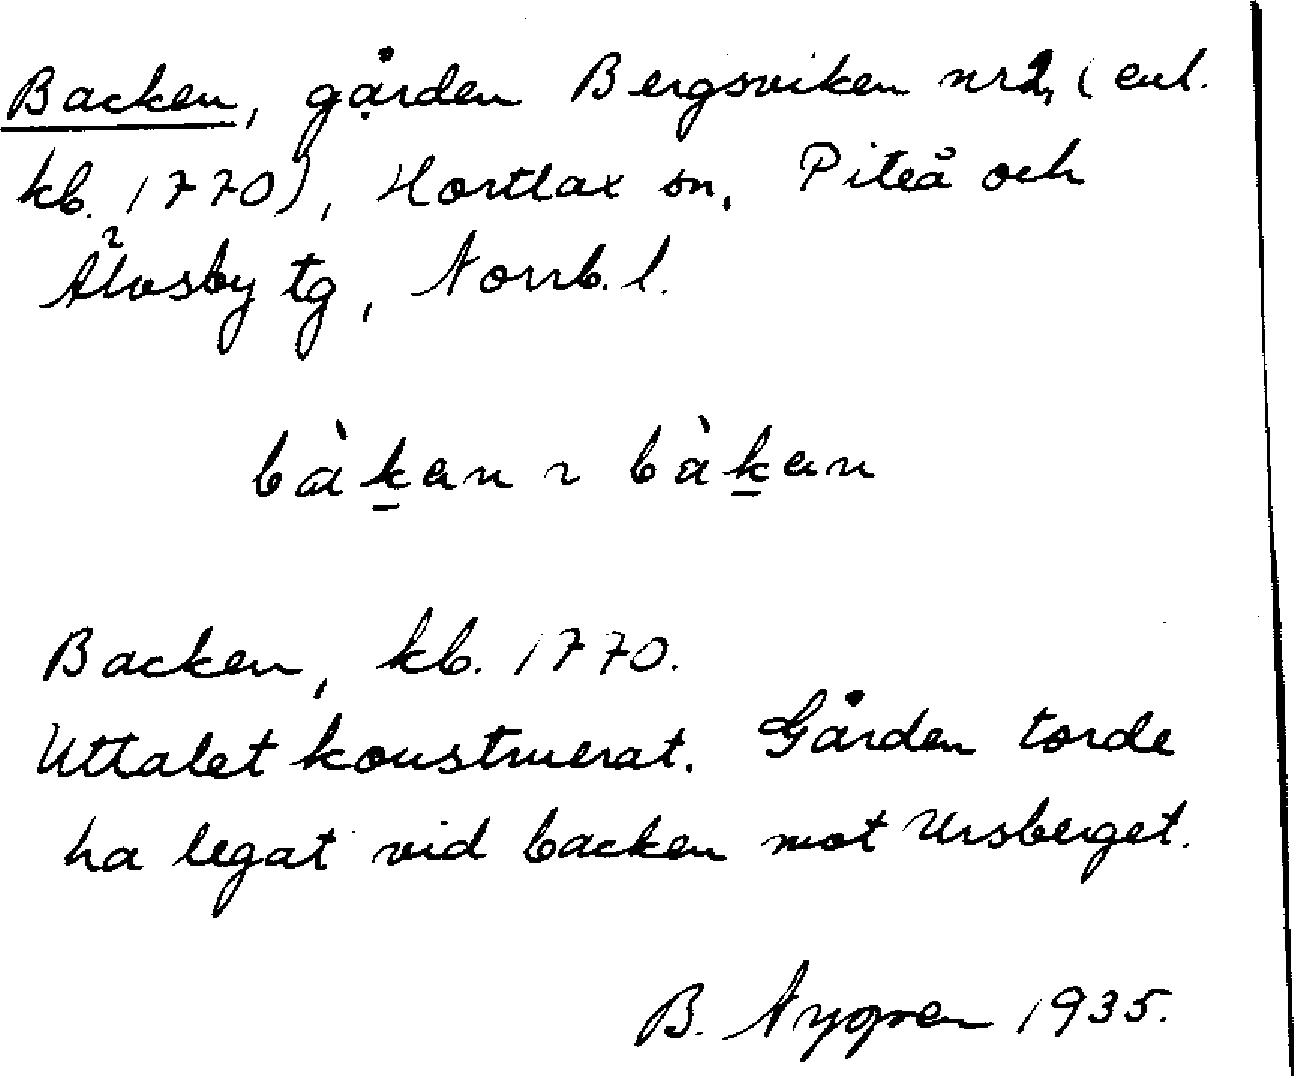 Backen, gården Bergsviken nr 2, (enl.
kb. 1770), Hortlax sn, Piteå och
Älvsby tg, Norrb. l.
bàḵen ~ bàḵen
Backen, kb. 1770.
Uttalet konstruerat. Gården torde
ha legat vid backen mot Ursberget.
B. Nygren 1935.